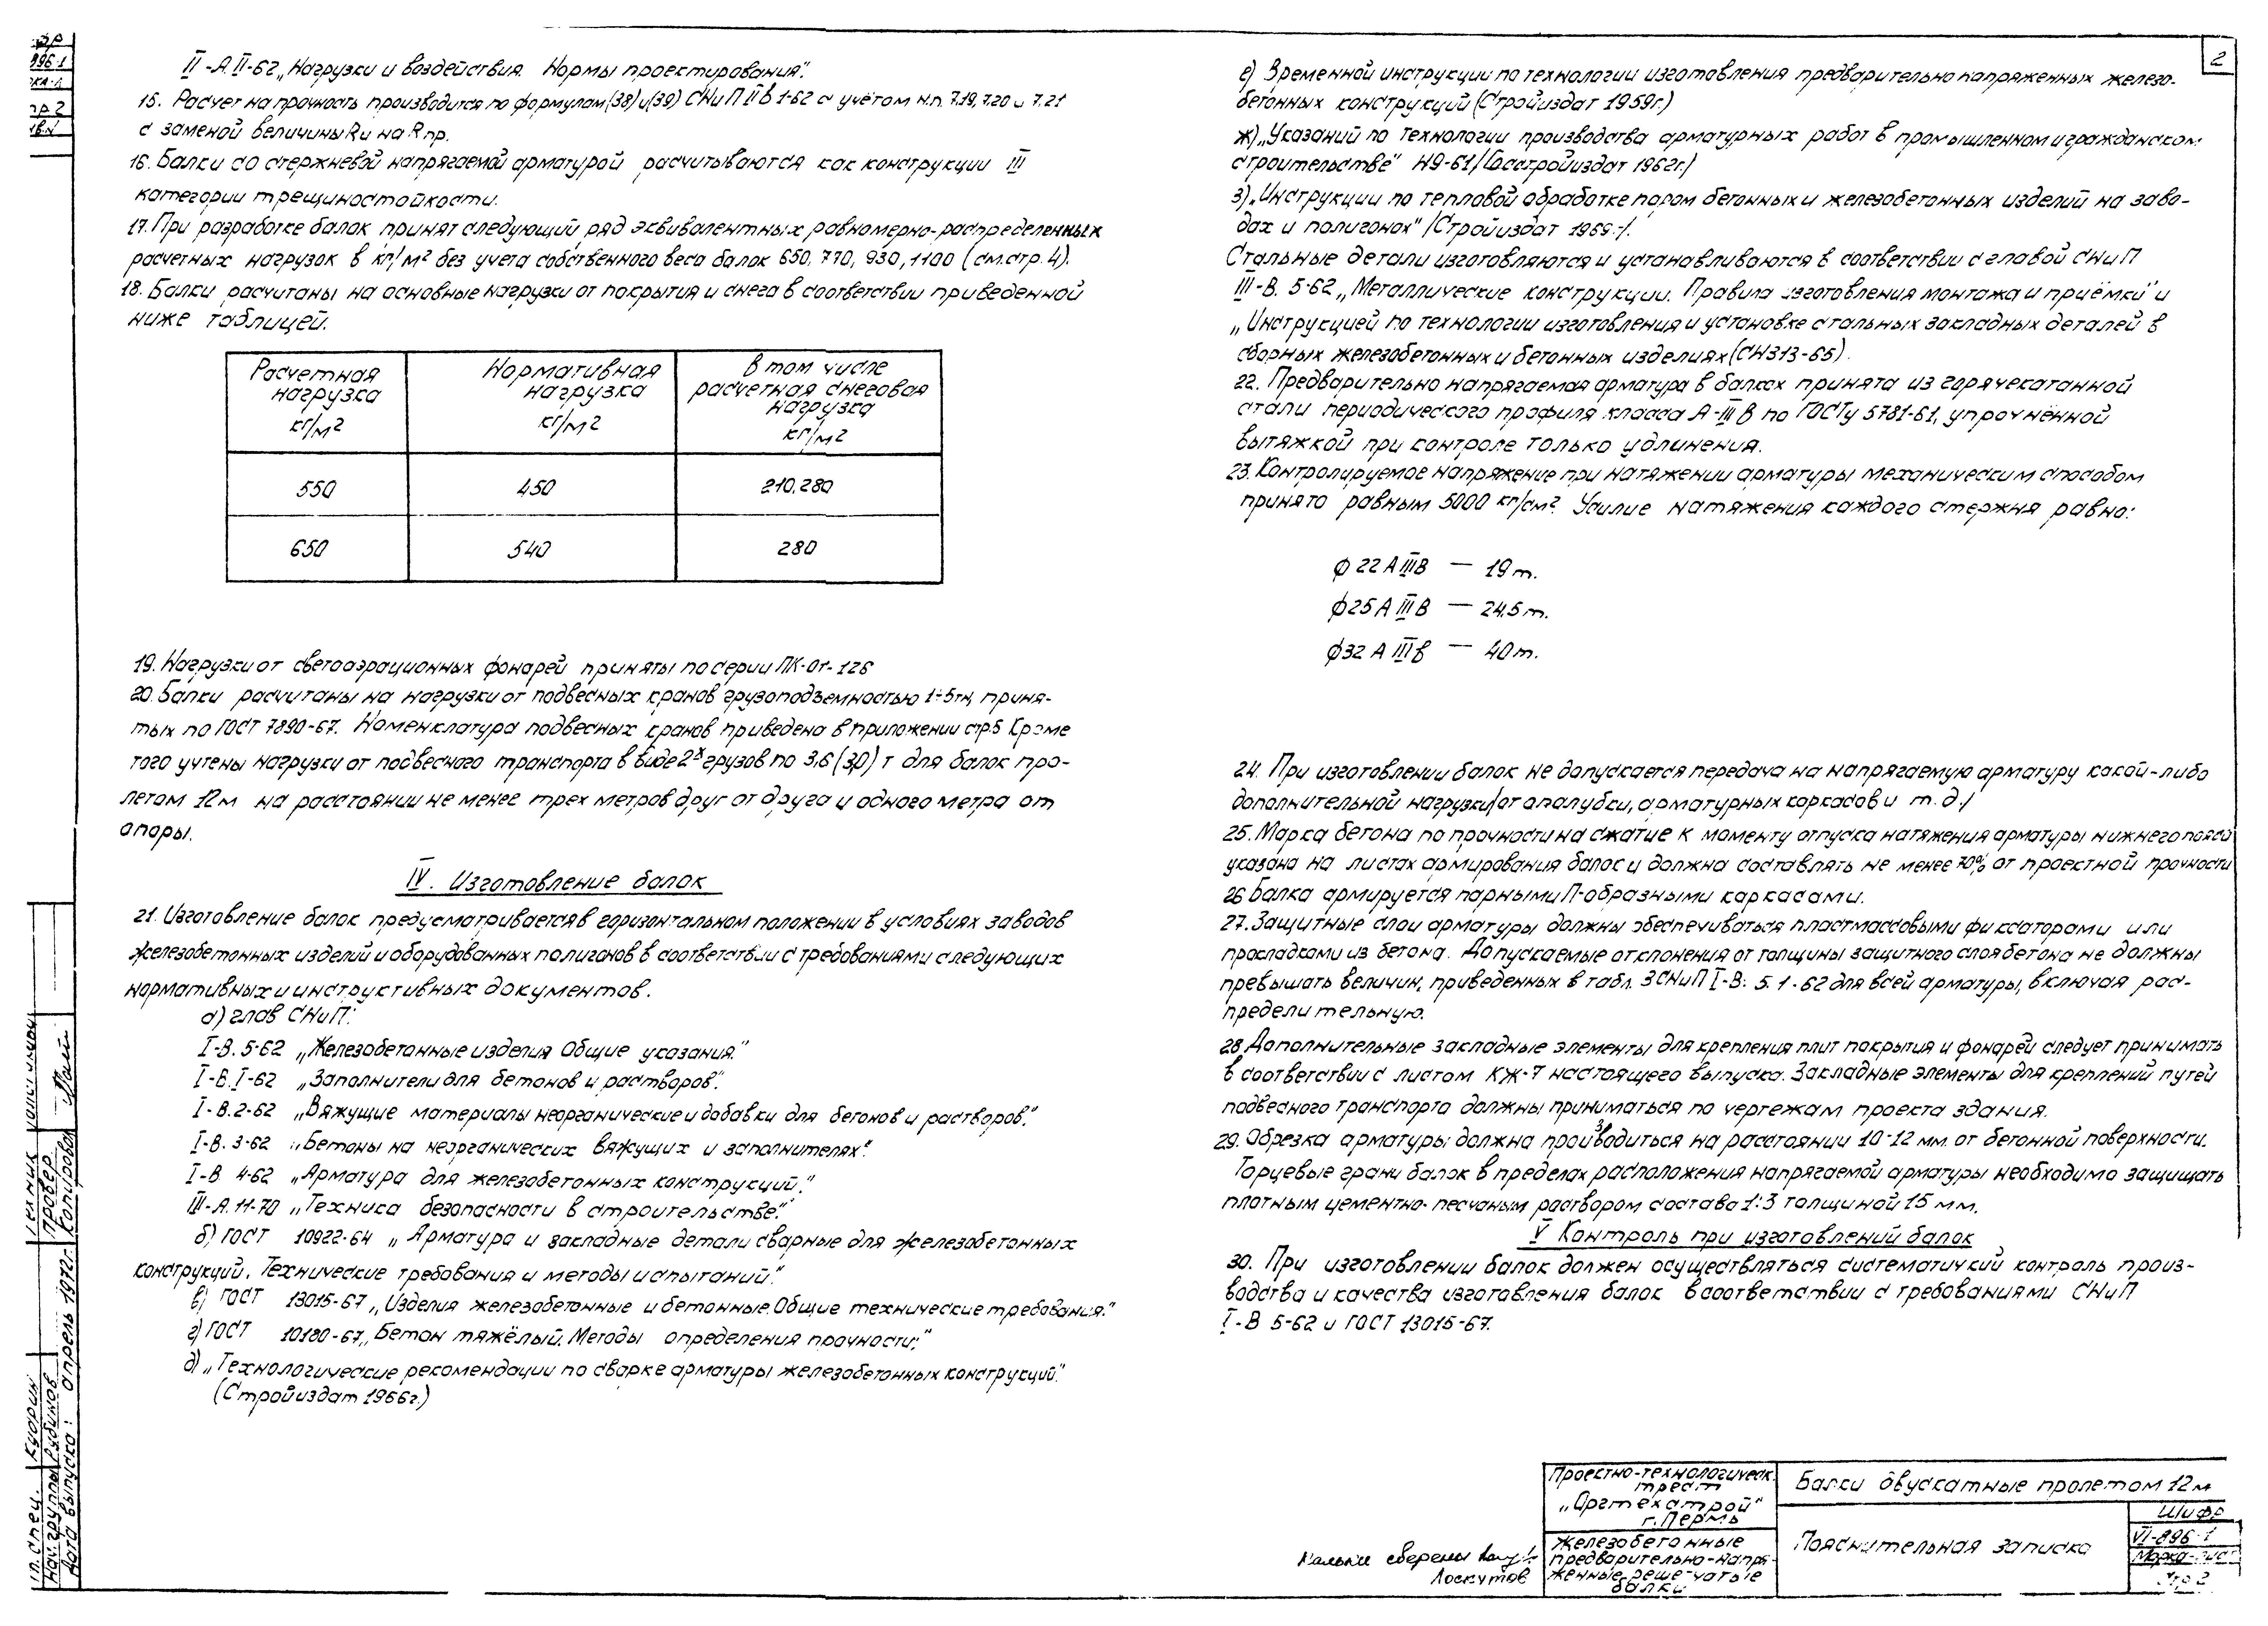 2
II-А.II-62 „Нагрузки и воздействия. Нормы проектирования".
15. Расчет на прочность производится по формулам (38) и (39) СНиП II В 1-62 с учётом н.п. 7.19, 7.20 и 7.21
с заменой величины Rи на R пр.
16. Балки со стержневой напрягаемой арматурой расчитываются как конструкции III
категории трещиностойкости.
17. При разработке балок принят следующий ряд эквивалентных равномерно-распределенных
расчетных нагрузок в кг/м² без учета собственного веса балок 650, 770, 930, 1100 (см.стр. 4).
18. Балки расчитаны на основные нагрузки от покрытия и снега в соответствии приведенной
ниже таблицей.
Расчетная нагрузка кг/м² | Нормативная нагрузка кг/м² | В том числе расчетная снеговая нагрузка кг/м²
550 | 450 | 210, 280
650 | 540 | 280
19. Нагрузки от светоаэрационных фонарей приняты по серии ПК-01-126
20. Балки расчитаны на нагрузки от подвесных кранов грузоподъемностью 1÷5тн, приня-
тых по ГОСТ 7890-67. Номенклатура подвесных кранов приведена в приложении стр.5 Кроме
того учтены нагрузки от подвесного транспорта в виде 2х грузов по 3,6 (3,0) т для балок про-
летом 12м на расстоянии не менее трех метров друг от друга и одного метра от
опоры.
IV. Изготовление балок
21. Изготовление балок предусматривается в горизонтальном положении в условиях заводов
железобетонных изделий и оборудованных полигонов в соответствии с требованиями следующих
нормативных и инструктивных документов.
а) глав СНиП:
I-В.5-62 „Железобетонные изделия Общие указания."
I-В.I-62 „Заполнители для бетонов и растворов".
I-В.2-62 „Вяжущие материалы неорганические и добавки для бетонов и растворов".
I-В.3-62 „Бетоны на неорганических вяжущих и заполнителях".
I-В 4-62 „Арматура для железобетонных конструкций."
III-А.11-70 „Техника безопасности в строительстве."
б) ГОСТ 10922-64 „Арматура и закладные детали сварные для железобетонных
конструкций. Технические требования и методы испытаний."
в) ГОСТ 13015-67 „Изделия железобетонные и бетонные. Общие технические требования."
г) ГОСТ 10180-67 „Бетон тяжёлый. Методы определения прочности;"
д) „Технологические рекомендации по сварке арматуры железобетонных конструкций."
(Стройиздат 1966г.)
е) Временной инструкции по технологии изготовления предварительно напряженных железо-
бетонных конструкций (Стройиздат 1959г.)
ж) „Указаний по технологии производства арматурных работ в промышленном и гражданском
строительстве" Н9-61 /Госстройиздат 1962г./
з) „Инструкции по тепловой обработке паром бетонных и железобетонных изделий на заво-
дах и полигонах" /Стройиздат 1969г./.
Стальные детали изготовляются и устанавливаются в соответствии с главой СНиП
III-В. 5-62 „Металлические конструкции. Правила изготовления монтажа и приёмки" и
„Инструкцией по технологии изготовления и установке стальных закладных деталей в
сборных железобетонных и бетонных изделиях (СН313-65).
22. Предварительно напрягаемая арматура в балках принята из горячекатанной
стали периодического профиля класса А-III В по ГОСТу 5781-61, упрочнённой
вытяжкой при контроле только удлинения.
23. Контролируемое напряжение при натяжении арматуры механическим способом
принято равным 5000 кг/см². Усилие натяжения каждого стержня равно:
ф 22 А III В — 19 т.
ф 25 А III В — 24,5 т.
ф 32 А III в — 40 т.
24. При изготовлении балок не допускается передача на напрягаемую арматуру какой-либо
дополнительной нагрузки /от опалубки, арматурных каркасов и т.д./
25. Марка бетона по прочности на сжатие к моменту отпуска натяжения арматуры нижнего пояса
указана на листах армирования балок и должна составлять не менее 70% от проектной прочности
26 Балка армируется парными П-образными каркасами.
27. Защитные слои арматуры должны обеспечиваться пластмассовыми фиксаторами или
прокладками из бетона. Допускаемые отклонения от толщины защитного слоя бетона не должны
превышать величин, приведенных в табл. 3 СНиП I-В. 5.1-62 для всей арматуры, включая рас-
пределительную.
28. Дополнительные закладные элементы для крепления плит покрытия и фонарей следует принимать
в соответствии с листом КЖ-7 настоящего выпуска. Закладные элементы для креплений путей
подвесного транспорта должны приниматься по чертежам проекта здания.
29. Обрезка арматуры должна производиться на расстоянии 10-12 мм. от бетонной поверхности.
Торцевые грани балок в пределах расположения напрягаемой арматуры необходимо защищать
плотным цементно-песчаным раствором состава 1:3 толщиной 15 мм.
V Контроль при изготовлений балок
30. При изготовлении балок должен осуществляться систематичкий контроль произ-
водства и качества изготовления балок в соответствии с требованиями СНиП
I-В 5-62 и ГОСТ 13015-67.
Кальки сверены
Лоскутов
Проектно-технологическ.
трест
„Оргтехстрой"
г. Пермь
Железобетонные
предварительно-напря-
женные решетчатые
балки
Балки двускатные пролетом 12м
Пояснительная записка
Шифр
VI-896-1
Марка-лист
Стр 2
Гл. спец. Куорин
Нач. группы Рубинов
Дата выпуска: апрель 1972г.
Техник
Провер.
Копировал